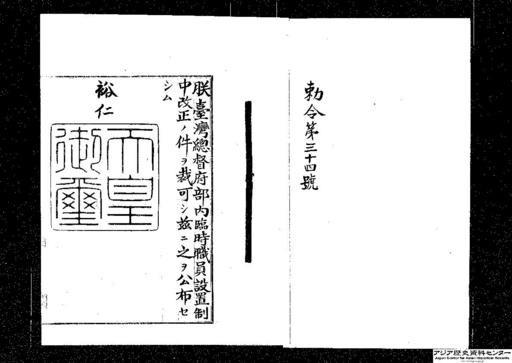 勅令第三十四號
朕臺灣總督府部內臨時職員設置制
中改正ノ件ヲ裁可シ玆ニ之ヲ公布セ
シム
裕仁
天皇
御璽
アジア歴史資料センター
Japan Center for Asian Historical Records